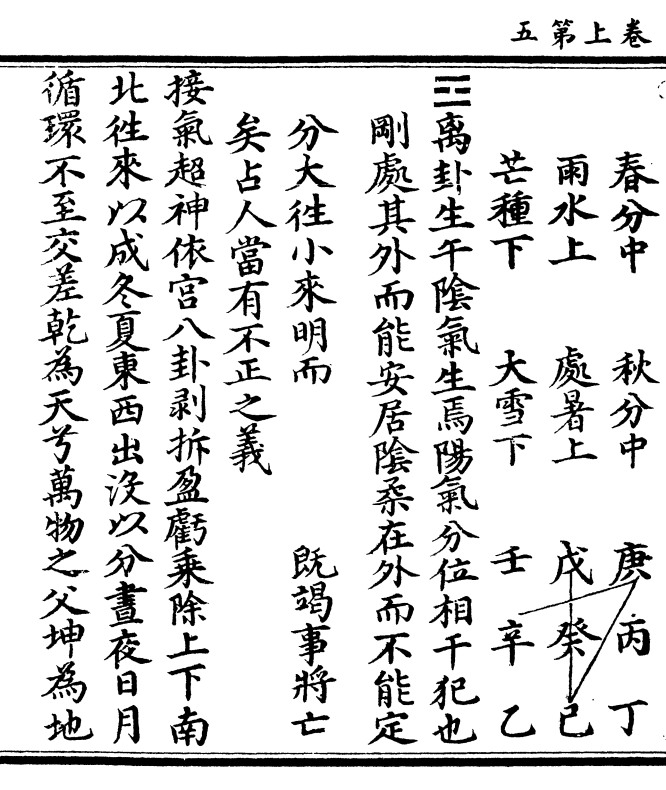 五第上卷
春分中 秋分中 庚丙丁
雨水上 處暑上 戊癸己
芒種下 大雪下 壬辛乙
☲離卦生午陰氣生焉陽氣分位相干犯也
剛處其外而能安居陰柔在外而不能定
分大徃小來明而 既竭事將亡
矣占人當有不正之義
接氣超神依宮八卦剥拆盈虧乘除上下南
北徃來以成冬夏東西出沒以分晝夜日月
循環不至交差乾為天兮萬物之父坤為地